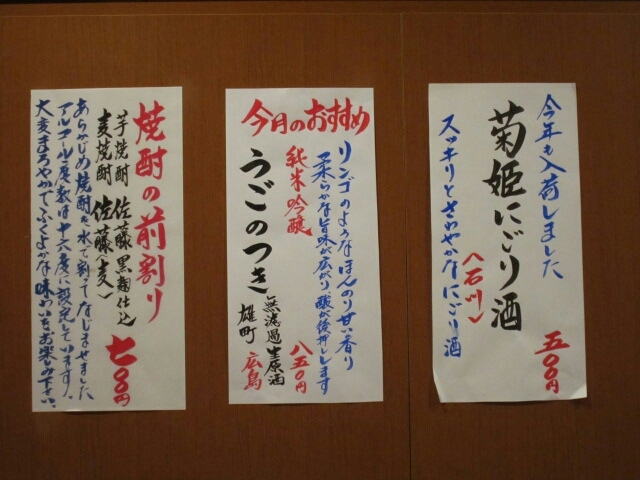 今年も入荷しました
菊姫にごり酒
〈石川〉
スッキリとさわやかなにごり酒
五〇〇円
今月のおすすめ
リンゴのようなほんのり甘い香り
柔らかな旨味が広がり、酸が後押しします
純米吟醸
うごのつき
無濾過生原酒
雄町
広島
八五〇円
焼酎の前割り
芋焼酎 佐藤黒麹仕込
麦焼酎 佐藤〈麦〉
七〇〇円
あらかじめ焼酎を水で割ってなじませました
アルコール度数は十六度に設定しています。
大変まろやかでふくよかな味わいをお楽しみ下さい。